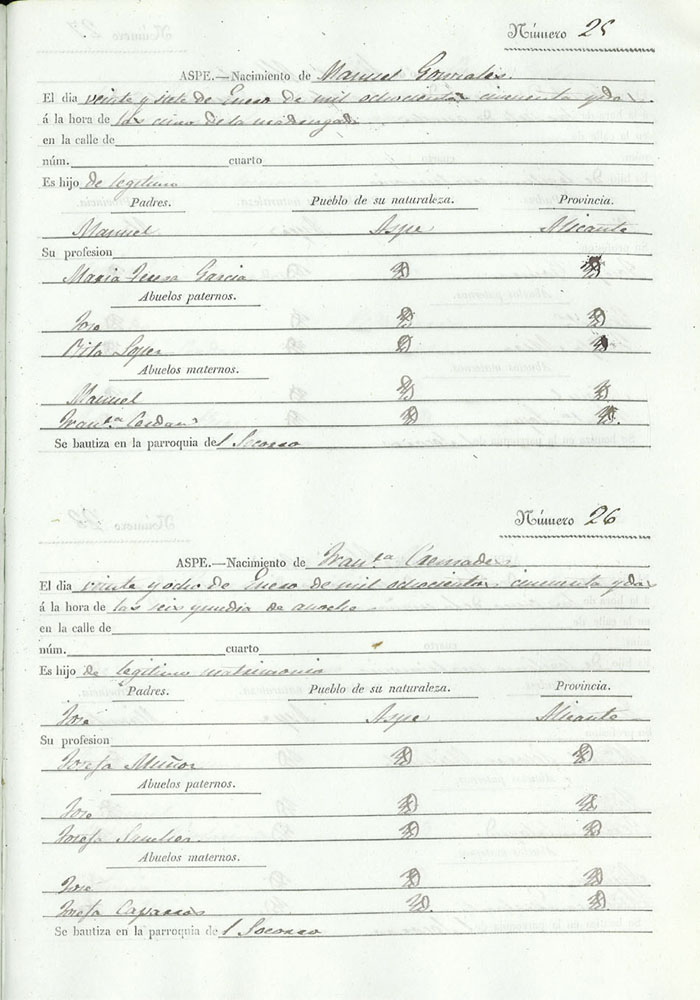 Número 25
ASPE.—Nacimiento de Manuel Gonzales.
El dia veinte y siete de Enero de mil ochocientos cincuenta y dos
á la hora de las cinco de la madrugada
en la calle de
núm. cuarto
Es hijo de legitimo
Padres. Pueblo de su naturaleza. Provincia.
Manuel Aspe Alicante
Su profesion
Maria Teresa Garcia
Abuelos paternos.
Jose
Rita Lopez
Abuelos maternos.
Manuel
Fran.ca
Se bautiza en la parroquia del Socorro
Número 26
ASPE.—Nacimiento de Fran.ca Cremades
El dia veinte y ocho de Enero de mil ochocientos cincuenta y dos
á la hora de las seis y media de anoche
en la calle de
núm. cuarto
Es hijo de legitimo matrimonio
Padres. Pueblo de su naturaleza. Provincia.
José Aspe Alicante
Su profesion
Josefa Muñoz
Abuelos paternos.
José
Josefa Sanchez
Abuelos maternos.
José
Josefa
Se bautiza en la parroquia de l Socorro